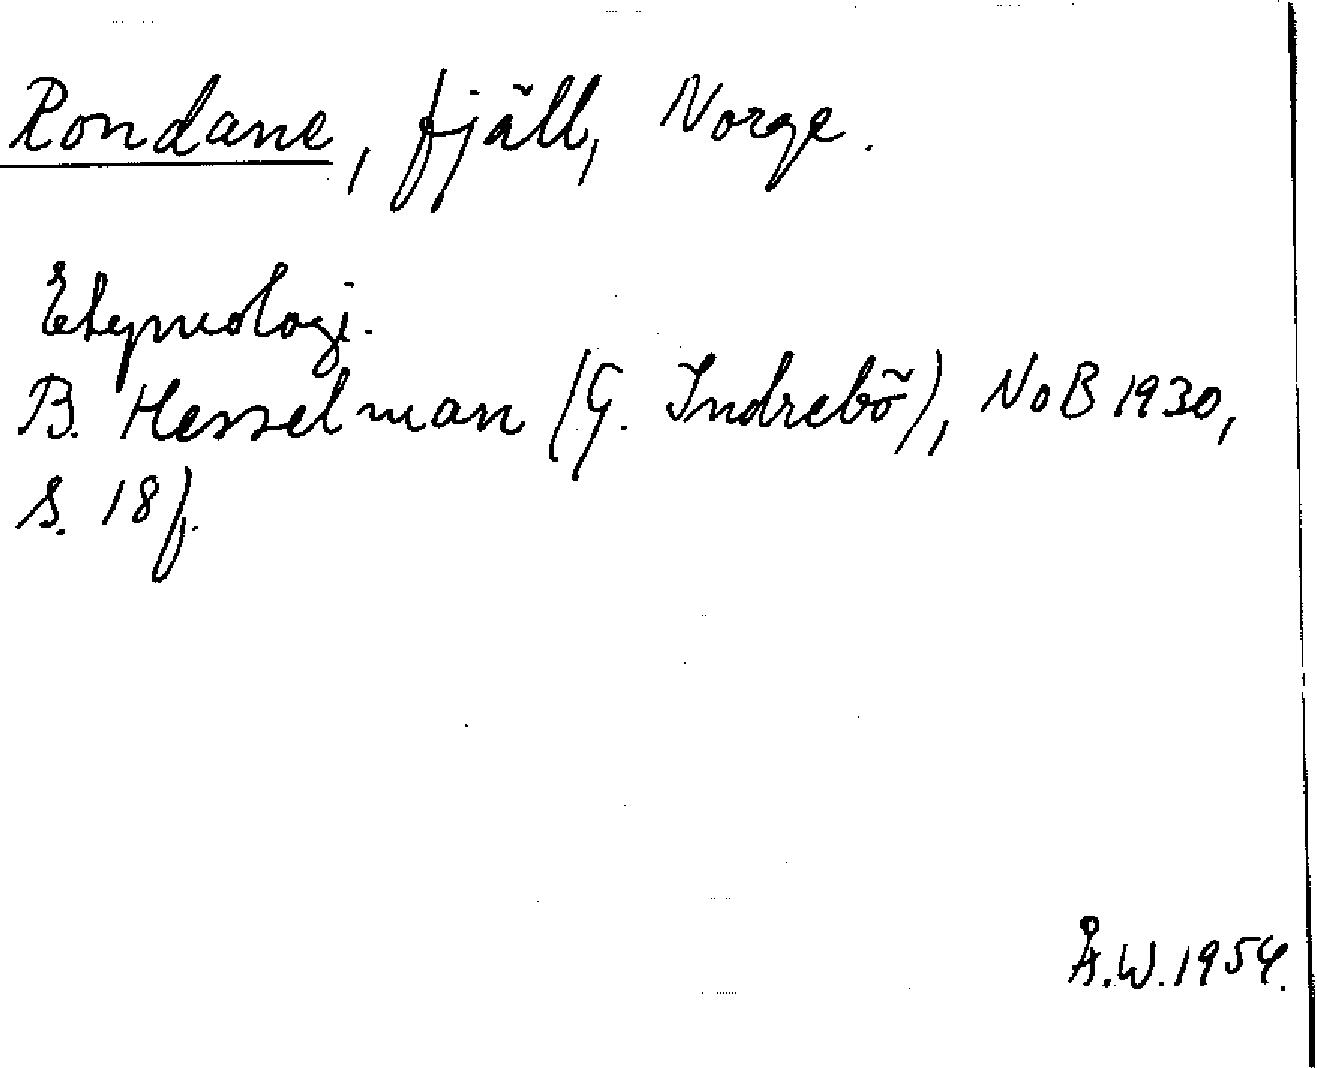 Rondane, fjäll, Norge.
Etymologi.
B. Hesselman (G. Indrebö), NoB 1930,
s. 18 f.
Å.W. 1954.